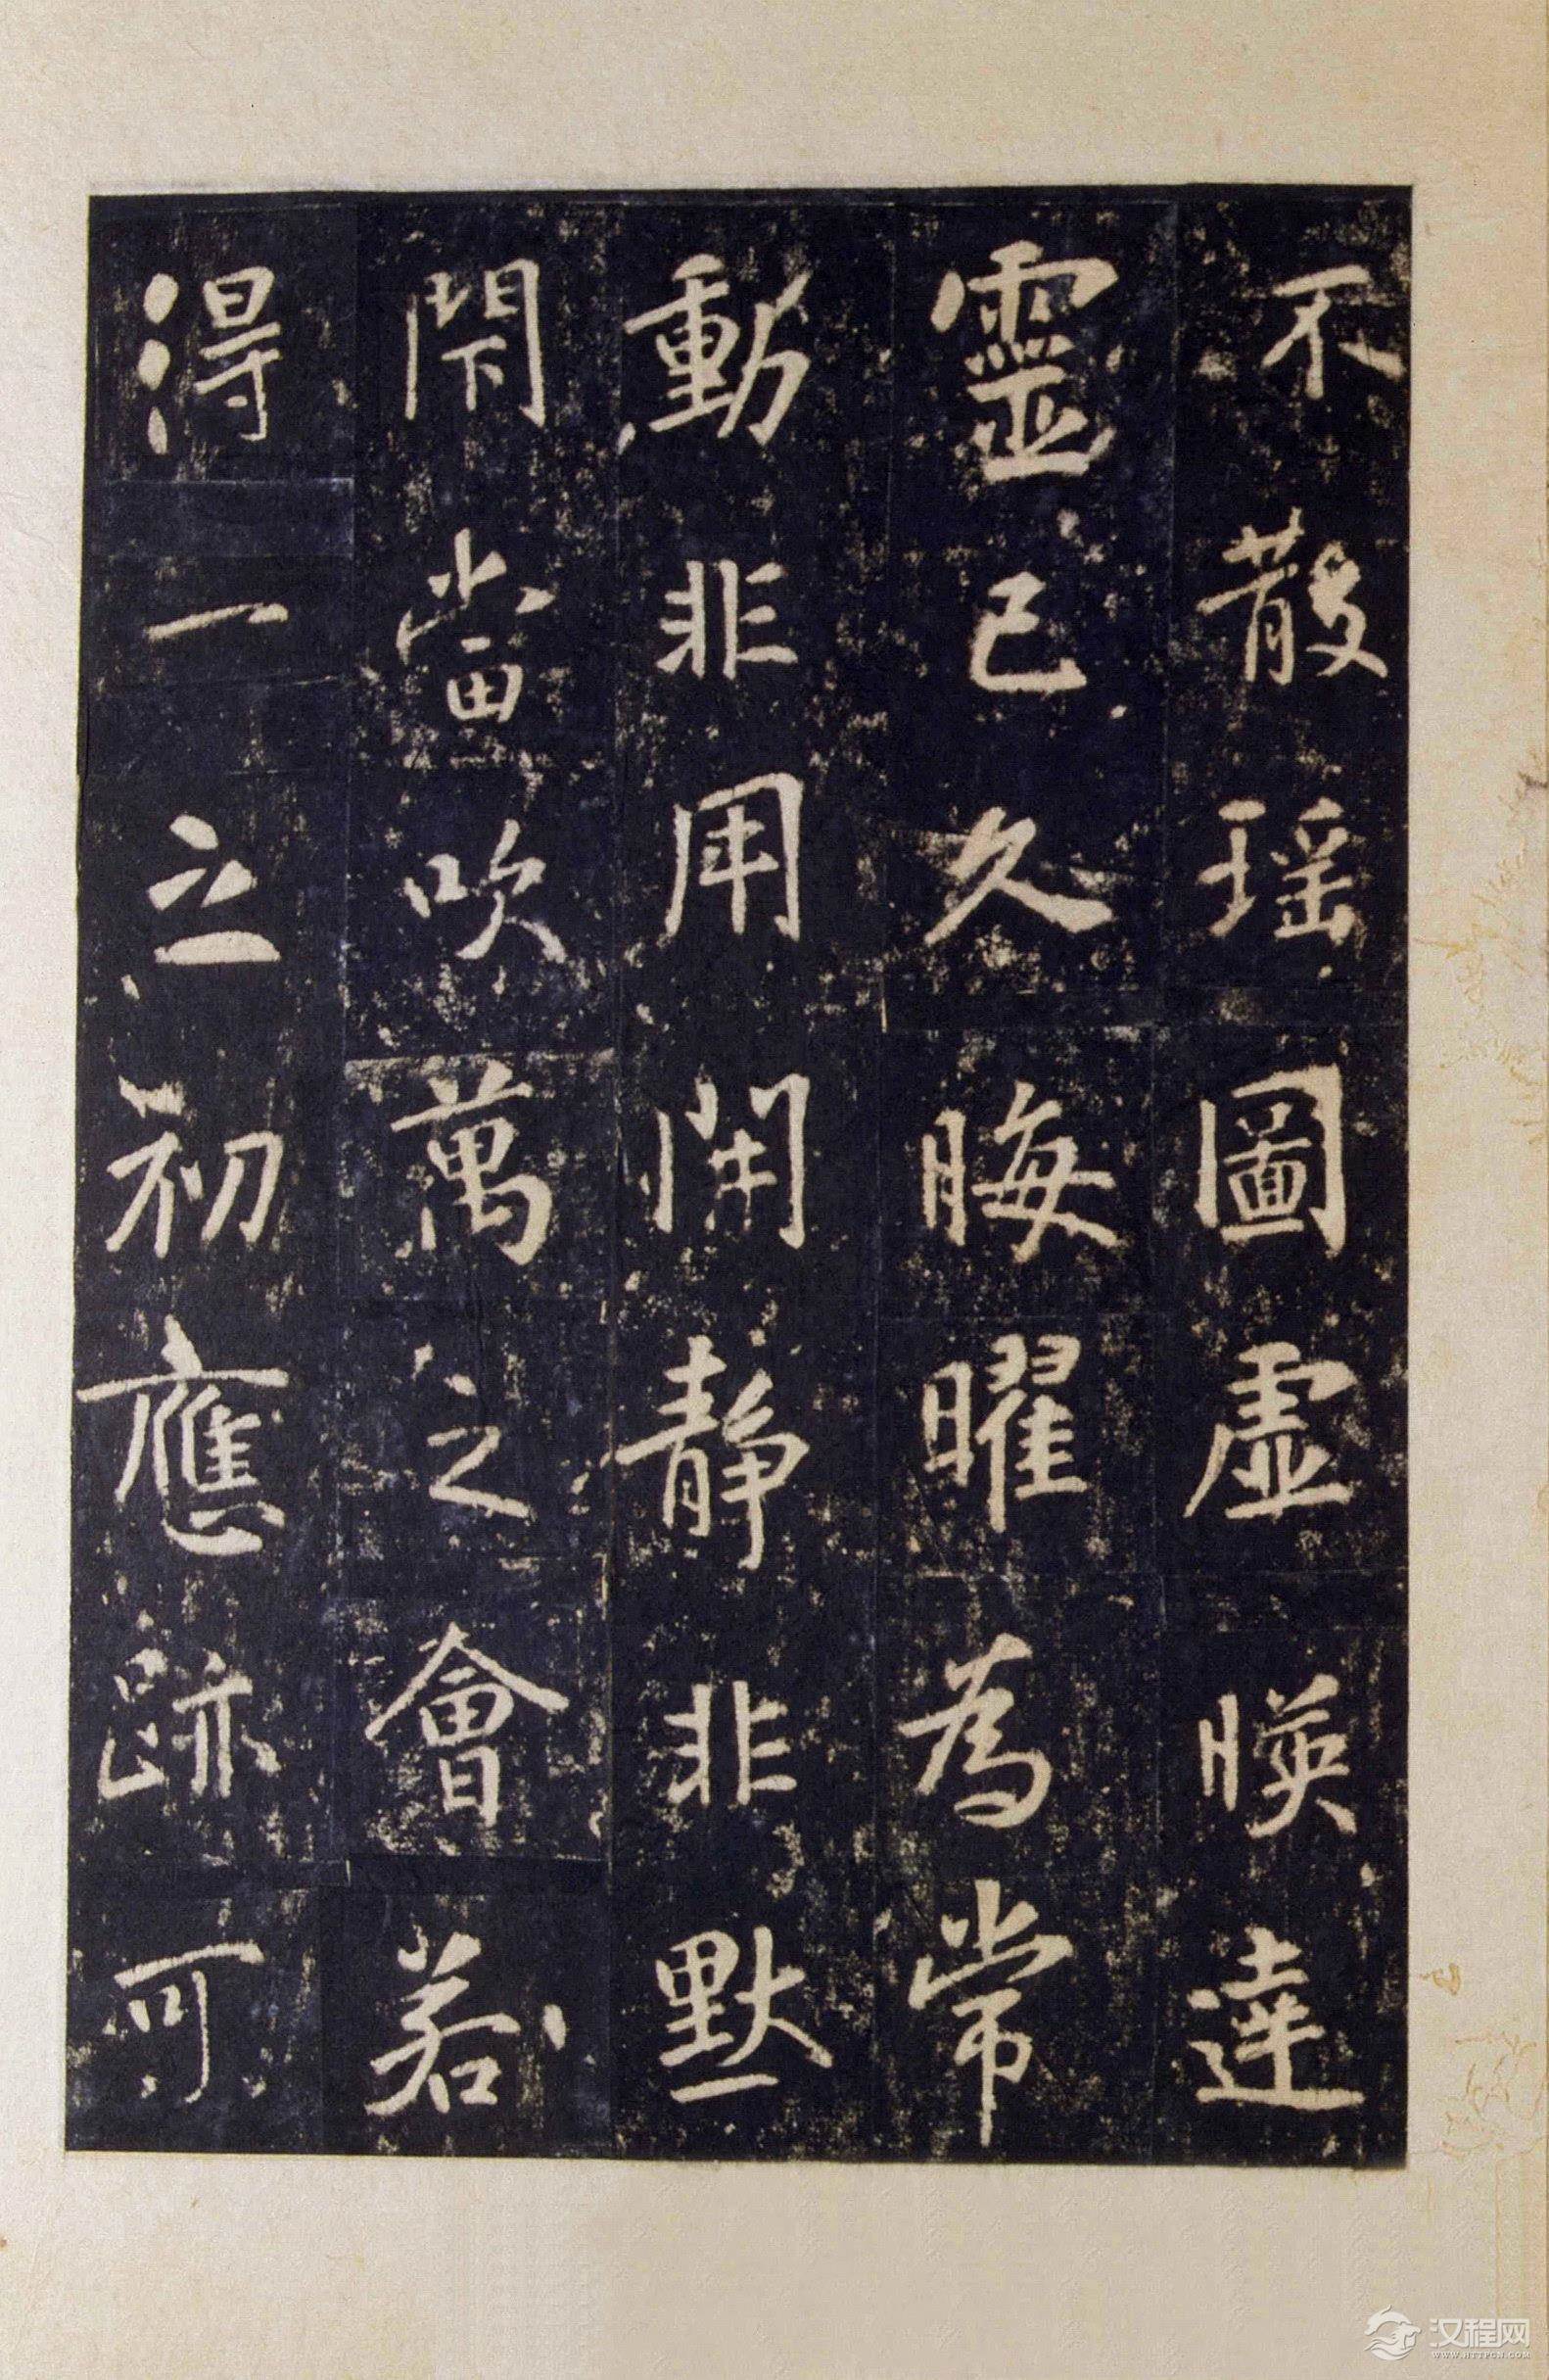 不散瑶圖虛暎達
靈已久晦曜為常
動非用開靜非默
閇當吹萬之會若
得一之初應跡可
汉程网
WWW.HTTPCN.COM